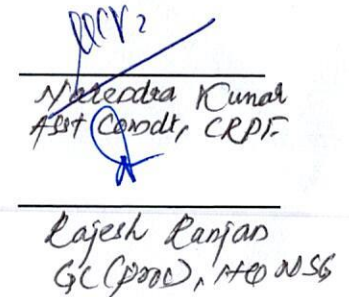 Narendra Kumar
Asst Comdt, CRPF
Rajesh Ranjan
GC (Proc), HQ NSG